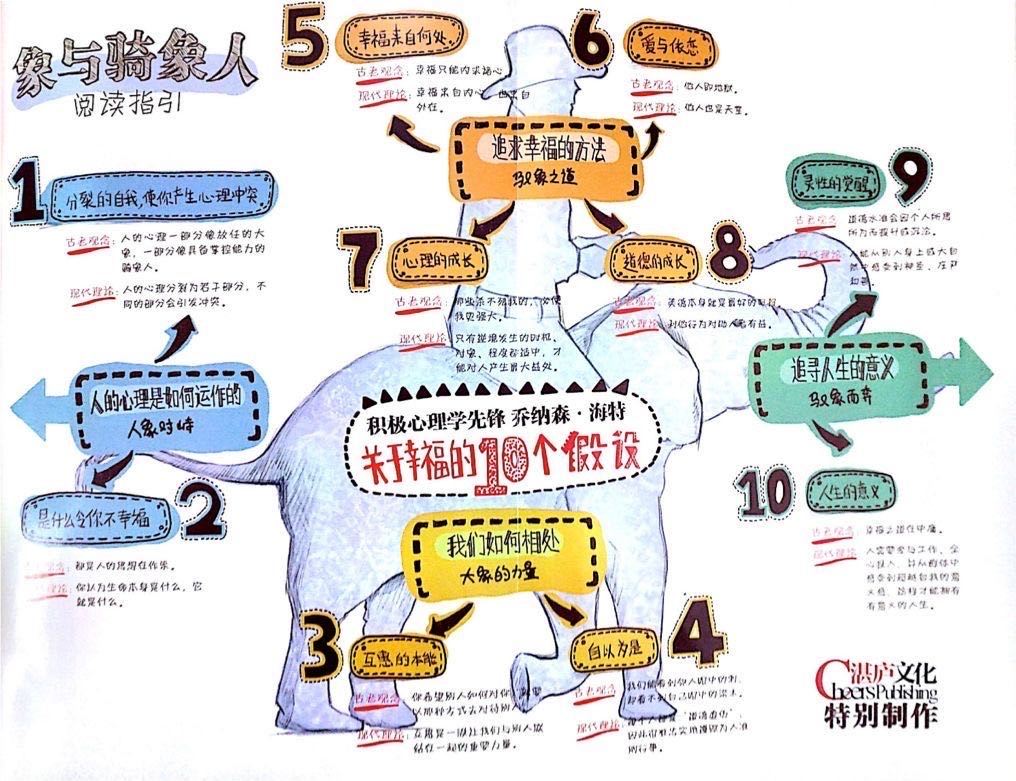 象与骑象人
阅读指引
1
分裂的自我,使你产生心理冲突
古老观念：人的心理一部分像放任的大
象，一部分像具备掌控能力的
骑象人。
现代理论：人的心理分裂为若干部分，不
同的部分会引发冲突。
人的心理是如何运作的
人象对峙
2
是什么令你不幸福
观念：都是人的思想在作祟。
理论：你认为生命本身是什么，它
就是什么。
5
幸福来自何处
古老观念：幸福只能内求诸心
现代理论：幸福来自内心，也来自
外在。
6
爱与依恋
古老观念：他人即地狱。
现代理论：他人也是天堂。
追求幸福的方法
驭象之道
7
心理的成长
古老观念：那些杀不死我的，必使
我更强大。
现代理论：只有逆境发生的时机、
对象、程度都适中，才
能对人产生最大益处。
8
道德的成长
古老观念：美德本身就是最好的
现代理论：利他行为对助人者有益。
9
灵性的觉醒
古老观念：道德水准会因个人所思
所为而提升或沉沦。
现代理论：人能从别人身上或大自
然中感受到神圣、庄严
追寻人生的意义
驭象而奔
10
人生的意义
古老观念：幸福之道在中庸。
现代理论：人需要参与工作，全
心投入，并从群体中
感受到超越自我的意
义感，这样才能拥有
有意义的人生。
积极心理学先锋 乔纳森·海特
关于幸福的10个假设
我们如何相处
大象的力量
3
互惠的本能
古老观念：你希望别人如何对你，就要
以那种方式去对待别人
现代理论：互惠是一股让我们与别人联
结在一起的重要力量。
4
自以为是
古老观念：我们能看到邻人眼中的刺，
却看不到自己眼中的梁木。
现代理论：每个人都是“道德虚伪”，
因此很难去实地
则行事。
湛庐文化
Cheers Publishing
特别制作